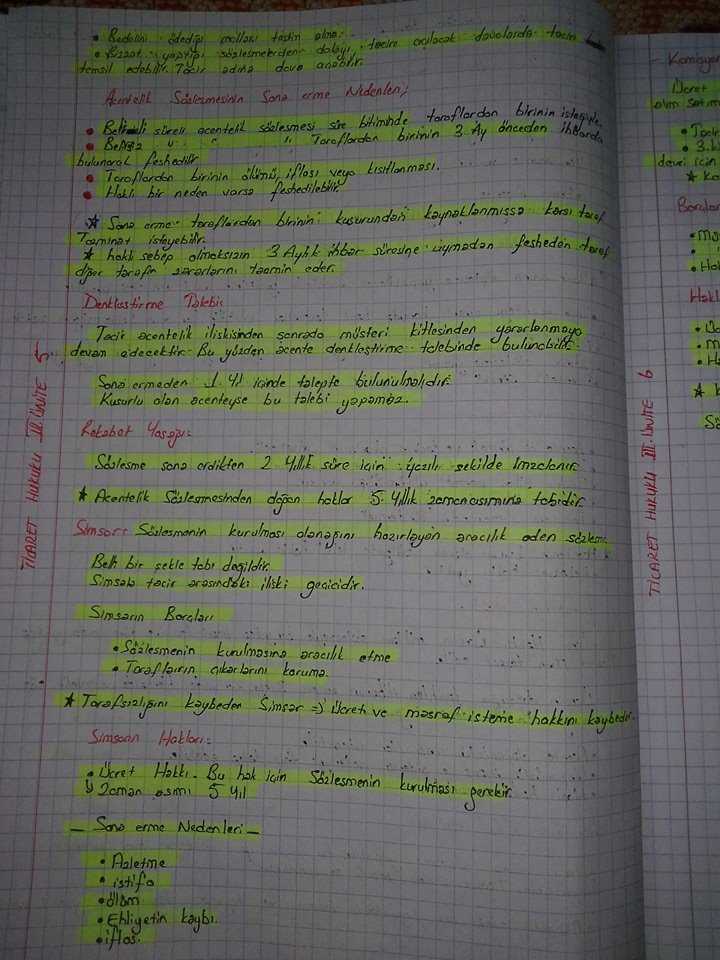 • Bedelini ödediği malları teslim alma.
• Bizzat yaptığı sözleşmelerden dolayı, tacire açılacak davalarda taciri
temsil edebilir. Tacir adına dava açabilir.
Acentelik Sözleşmesinin Sona erme Nedenleri;
• Belirli süreli acentelik sözleşmesi süre bitiminde taraflardan birinin isteğiyle
• Belirsiz " " " Taraflardan birinin 3 Ay önceden ihbarda
bulunarak feshedilir
• Taraflardan birinin ölümü, iflası veya kısıtlanması.
• Haklı bir neden varsa feshedilebilir.
★ Sona erme taraflardan birinin kusurundan kaynaklanmışsa karşı taraf
Tazminat isteyebilir.
★ haklı sebep olmaksızın 3 Aylık ihbar süresine uymadan fesheden taraf
diğer tarafın zararlarını tazmin eder.
Denkleştirme Talebi:
Tacir acentelik ilişkisinden sonrada müşteri kitlesinden yararlanmaya
devam edecektir. Bu yüzden acente denkleştirme talebinde bulunabilir.
Sona ermeden 1 Yıl içinde talepte bulunulmalıdır.
Kusurlu olan acenteyse bu talebi yapamaz.
Rekabet Yasağı:
Sözleşme sona erdikten 2 Yıllık süre için yazılı şekilde imzalanır.
★ Acentelik Sözleşmesinden doğan haklar 5 Yıllık zamanaşımına tabidir.
Simsar: Sözleşmenin kurulması olanağını hazırlayan aracılık eden sözleşme
Belli bir şekle tabi değildir.
Simsarla tacir arasındaki ilişki geçicidir.
Simsarın Borçları
• Sözleşmenin kurulmasına aracılık etme
• Tarafların çıkarlarını koruma.
★ Tarafsızlığını kaybeden Simsar => Ücret ve masraf isteme hakkını kaybeder.
Simsarın Hakları:
• Ücret Hakkı. Bu hak için Sözleşmenin kurulması gerekir.
↳ Zaman aşımı 5 Yıl
— Sona erme Nedenleri —
• Azletme
• istifa
• ölüm
• Ehliyetin kaybı.
• iflas.
TİCARET HUKUKU III. ÜNİTE 5
TİCARET HUKUKU III. ÜNİTE 6
- Komisyon
Ücret
• 3.
devri için
★
Borçları
Hakl